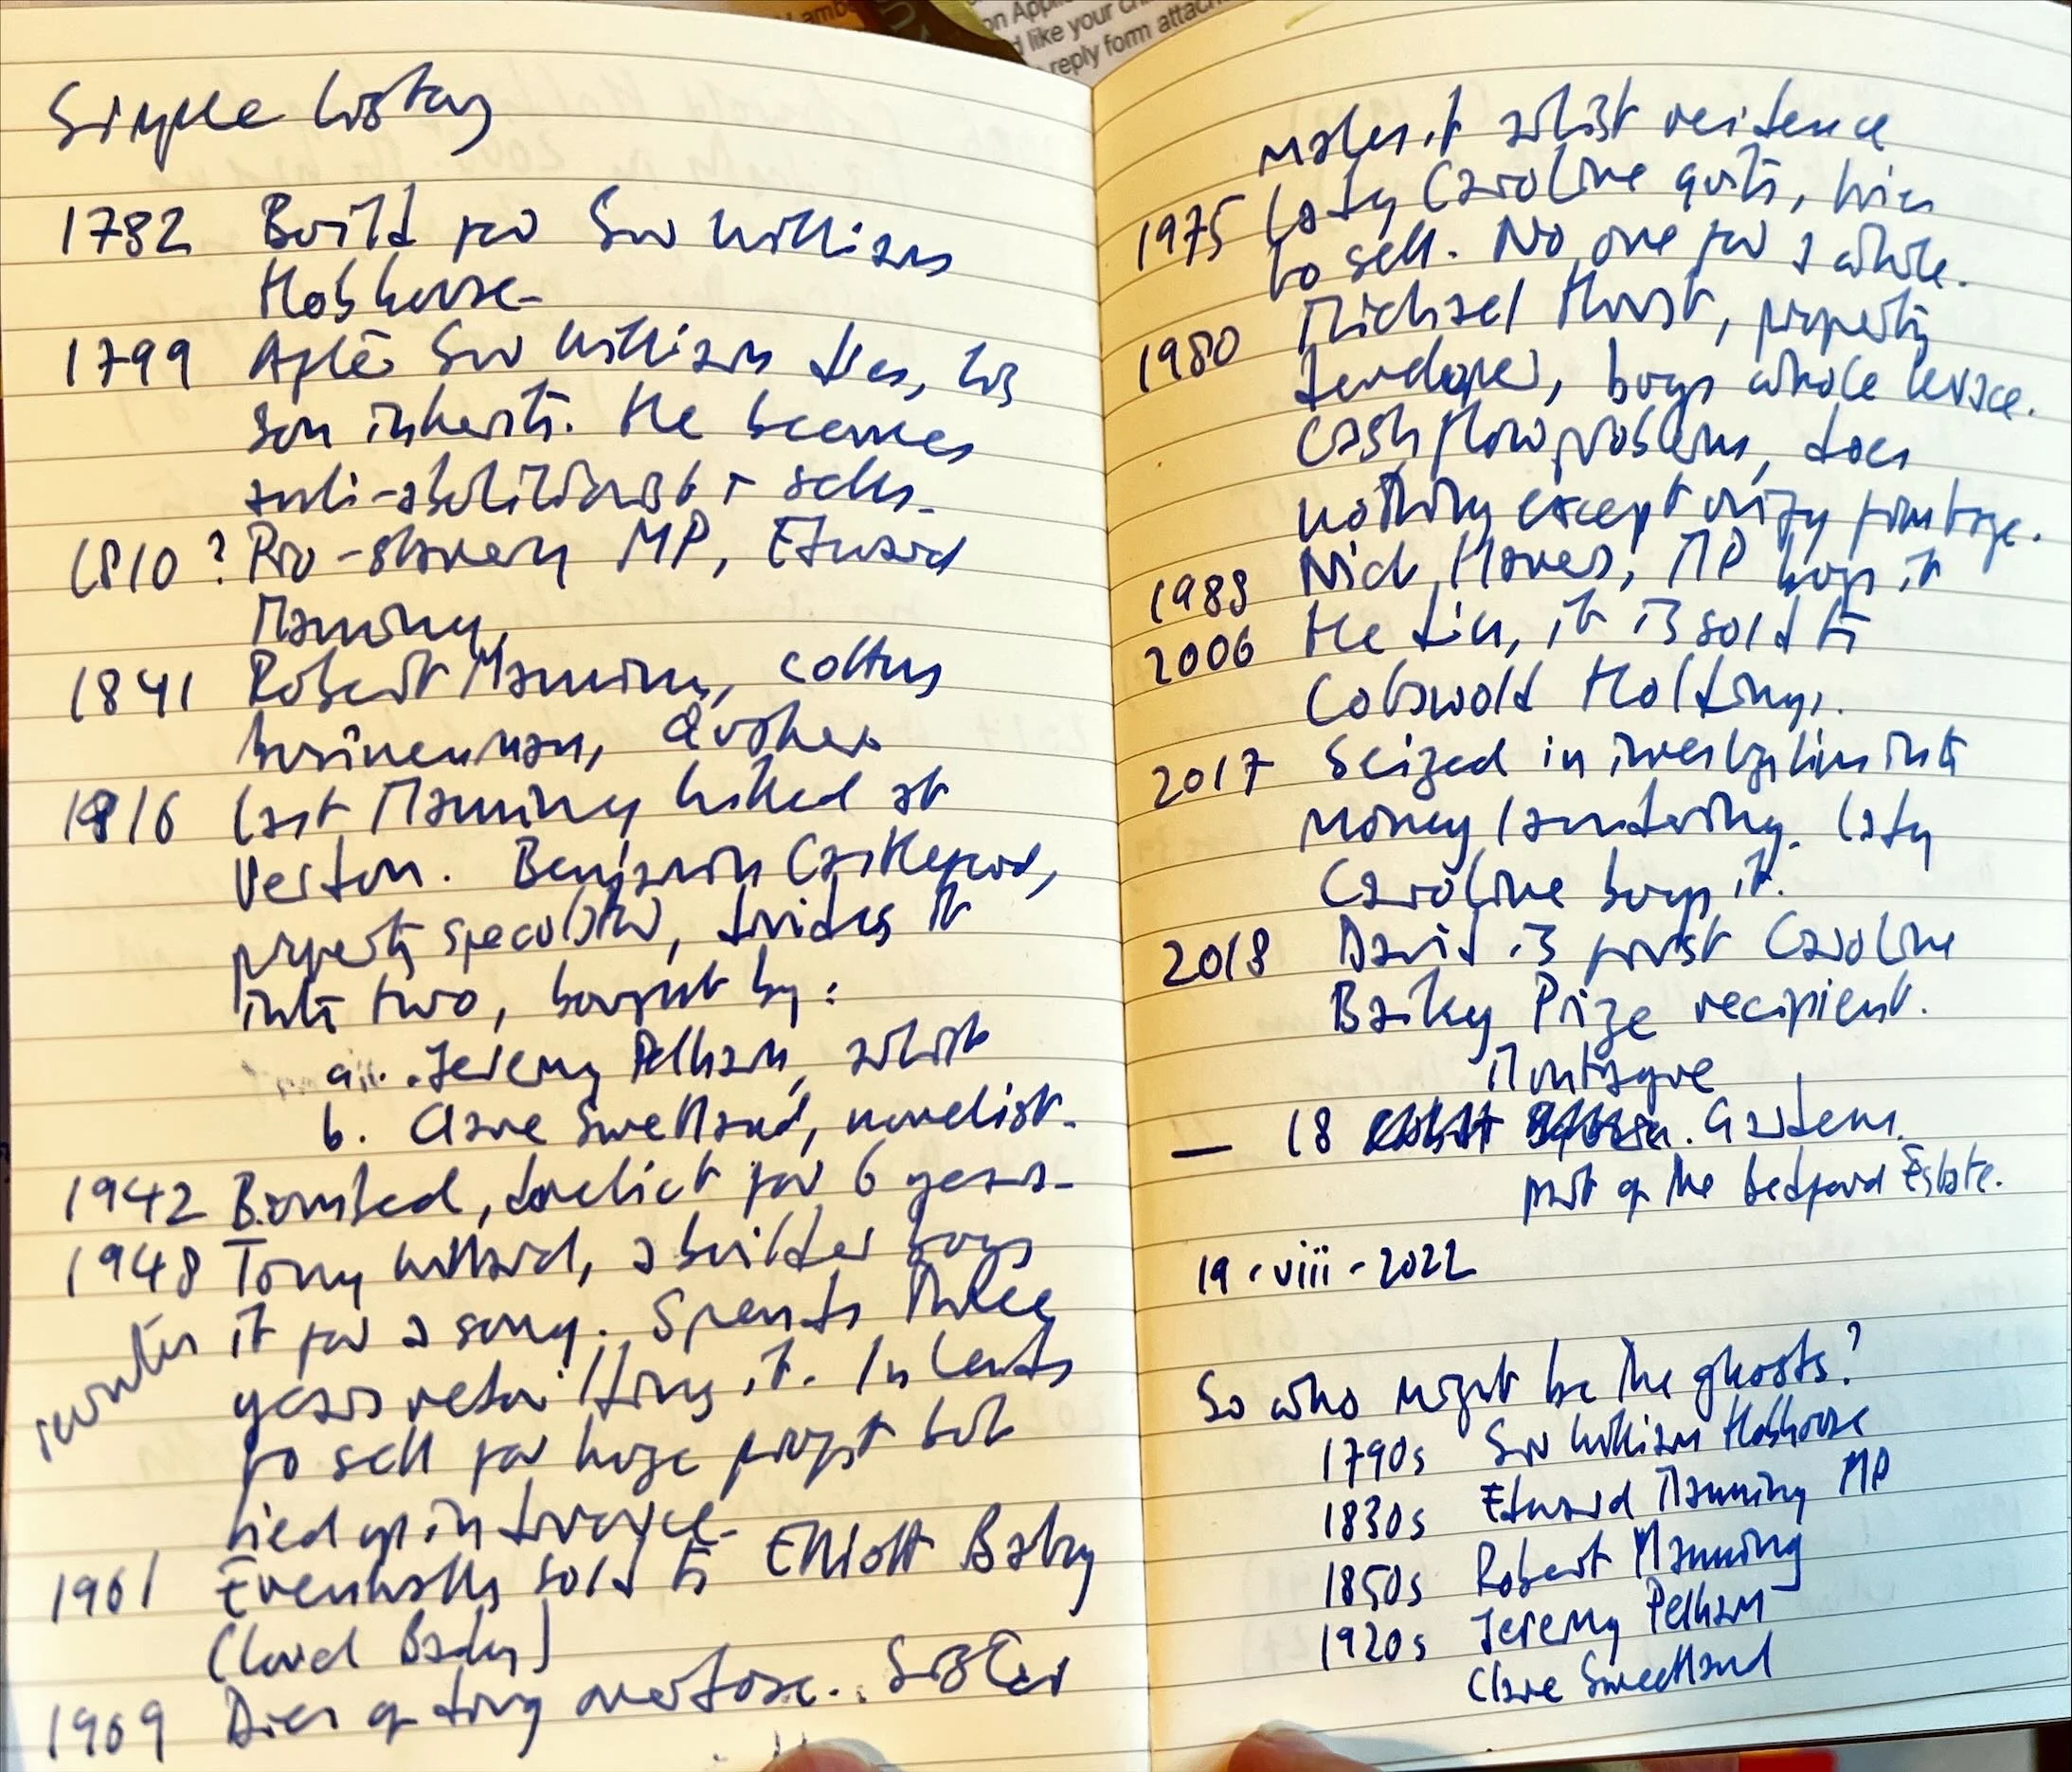 Simple history
1782 Build for Sir William
Hobhouse.
1799 After Sir William dies, his
son inherits. He becomes
anti-abolitionist + sells.
1810? Pro-slavery MP, Edward
Manning,
1841 Robert Manning, cotton
businessman, Quaker
1916 Last Manning killed at
Verdun. Benjamin Castleford,
property speculator, divides it
into two, bought by:
a. Jeremy Pelham, artist
b. Clare Sweetland, novelist.
1942 Bombed, derelict for 6 years.
1948 Tony Willard, a builder buys
it for a song. Spends three
years rebuilding it. Intends
to sell for huge profit but
tied up in divorce.
1961 Eventually sold to Elliott Bailey
(Lord Bailey)
1969 Dies of drug overdose. Sister
makes it artist residence
1975 Lady Caroline quits, tries
to sell. No one for a while.
1980 Michael Hurst, property
developer, buys whole terrace.
Cashflow problems, does
nothing except tidy frontage.
1988 Nick Hawes, MP buys it
2006 He dies, it is sold to
Cotswold Holdings.
2017 Seized in investigation into
money laundering. Lady
Caroline buys it.
2018 David is first Caroline
Bailey Prize recipient.
Montague
— 18 Gardens.
part of the Bedford Estate.
19.viii.2022
So who might be the ghosts?
1790s Sir William Hobhouse
1830s Edward Manning MP
1850s Robert Manning
1920s Jeremy Pelham
Clare Sweetland
on Appli
like your ch
reply form attach